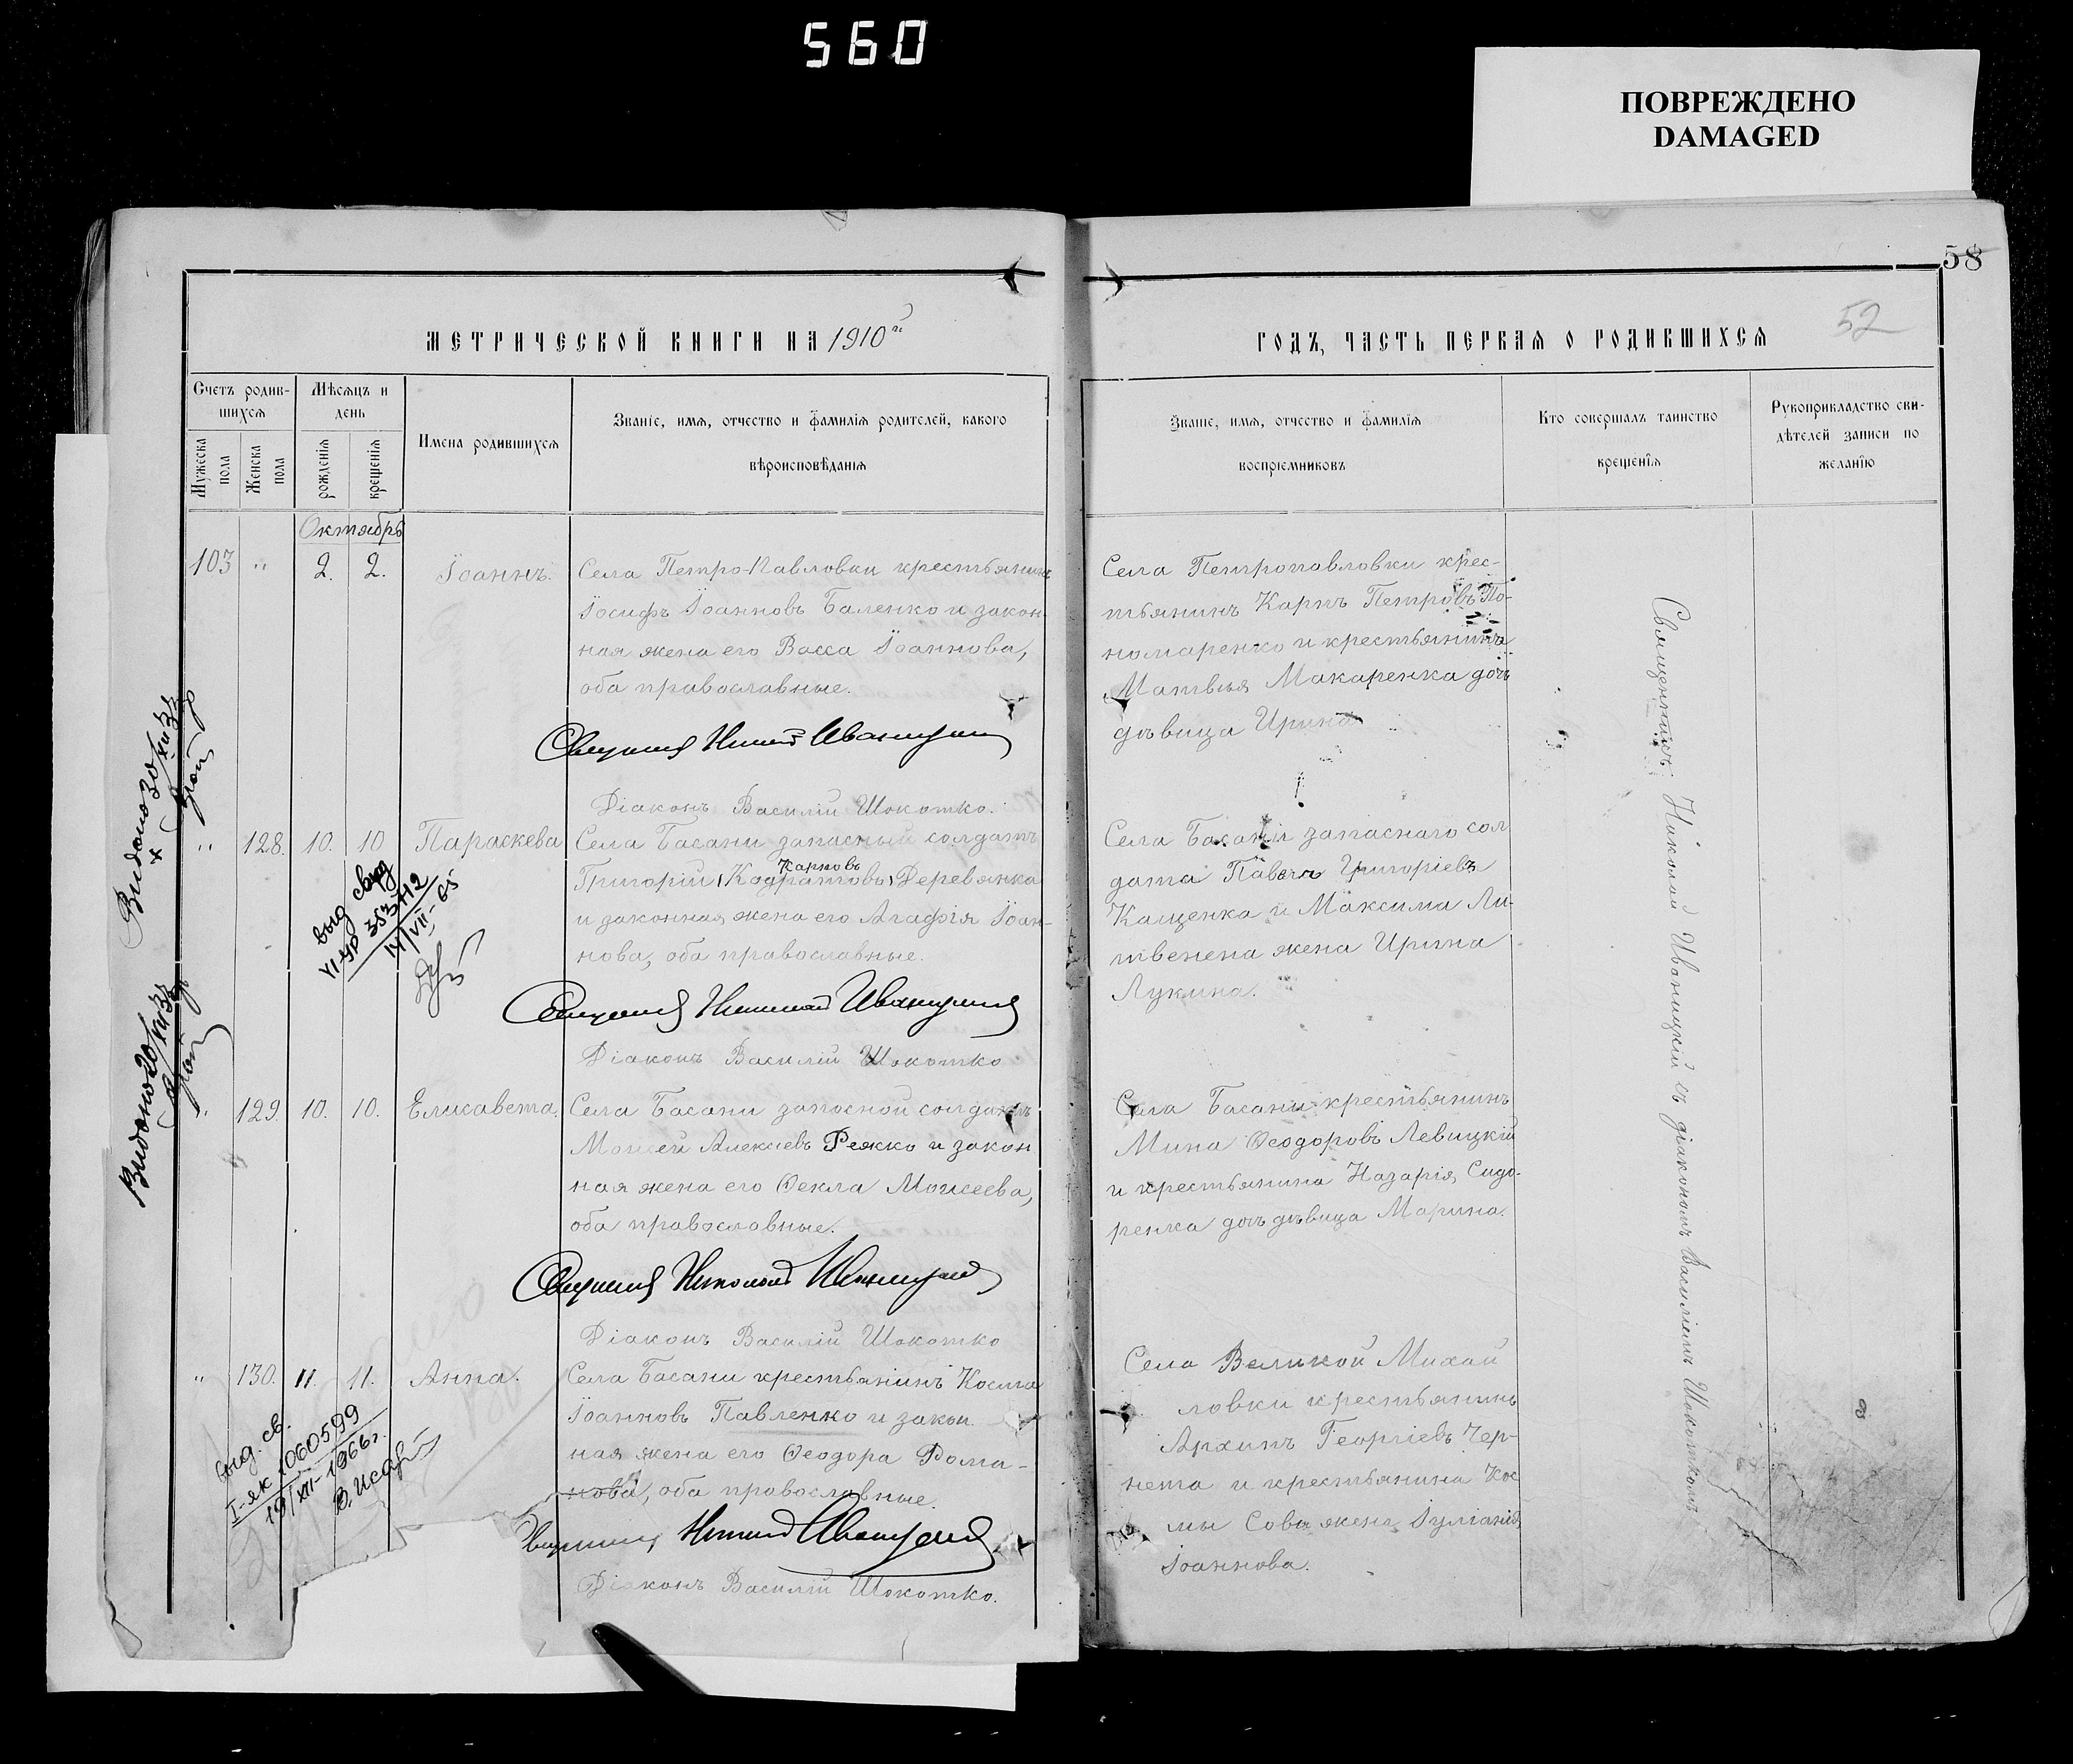 560
ПОВРЕЖДЕНО
DAMAGED
58
52
МЕТРИЧЕСКОЙ КНИГИ НА 1910й
ГОДЪ, ЧАСТЬ ПЕРВАЯ О РОДИВШИХСЯ
Счетъ родив-
шихся
Мужеска пола
Женска пола
Мѣсяцъ и
день
рожденія
крещенія
Имена родившихся
Званіе, имя, отчество и фамилія родителей, какого
вѣроисповѣданія
Званіе, имя, отчество и фамилія
воспріемниковъ
Кто совершалъ таинство
крещенія
Рукоприкладство сви-
дѣтелей записи по
желанію
Октябрь
103 " 2. 2. Іоаннъ.
Села Петро-Павловки крестьянинъ
Іосифъ Іоанновъ Баленко и закон-
ная жена его Васса Іоаннова,
оба православные.
Діаконъ Василій Шокотко.
Села Петропавловки крес-
тьянинъ Карпъ Петровъ По-
номаренко и крестьянина
Матвѣя Макаренка дочь
дѣвица Ирина
" 128. 10. 10 Параскева
Села Басани запасный солдатъ
Карповъ
Григорій (Кодратовъ) Деревянка
и законная жена его Агафія Іоан-
нова, оба православные.
Священникъ Николай Иваницкій
Діаконъ Василій Шокотко
Села Басани запаснаго сол
дата Павла Григоріевъ
Кащенка и Максима Ли-
твенена жена Ирина
Лукина.
" 129. 10. 10. Елисавета.
Села Басани запасной солдатъ
Моисей Алексіевъ Режко и закон
ная жена его Ѳекла Моисеева,
оба православные.
Священникъ Николай Иваницкій
Діаконъ Василій Шокотко
Села Басани крестьянинъ
Мина Ѳеодоровъ Левицкій
и крестьянина Назарія Сидо-
ренка дочь дѣвица Марина.
" 130. 11. 11. Анна.
Села Басани крестьянинъ Косма
Іоанновъ Павленко и закон
ная жена его Ѳеодора Рома-
нова, оба православные.
Діаконъ Василій Шокотко.
Села Великой Михай
ловки крестьянинъ
Архипъ Георгіевъ Чер-
нета и крестьянина Кос
мы Совы жена Іуліанія
Іоаннова.
Священникъ Николай Иваницкій съ діакономъ Василіемъ Шокоткомъ
выд. св.
I-ЯК 1060599
19/XII-1966г.